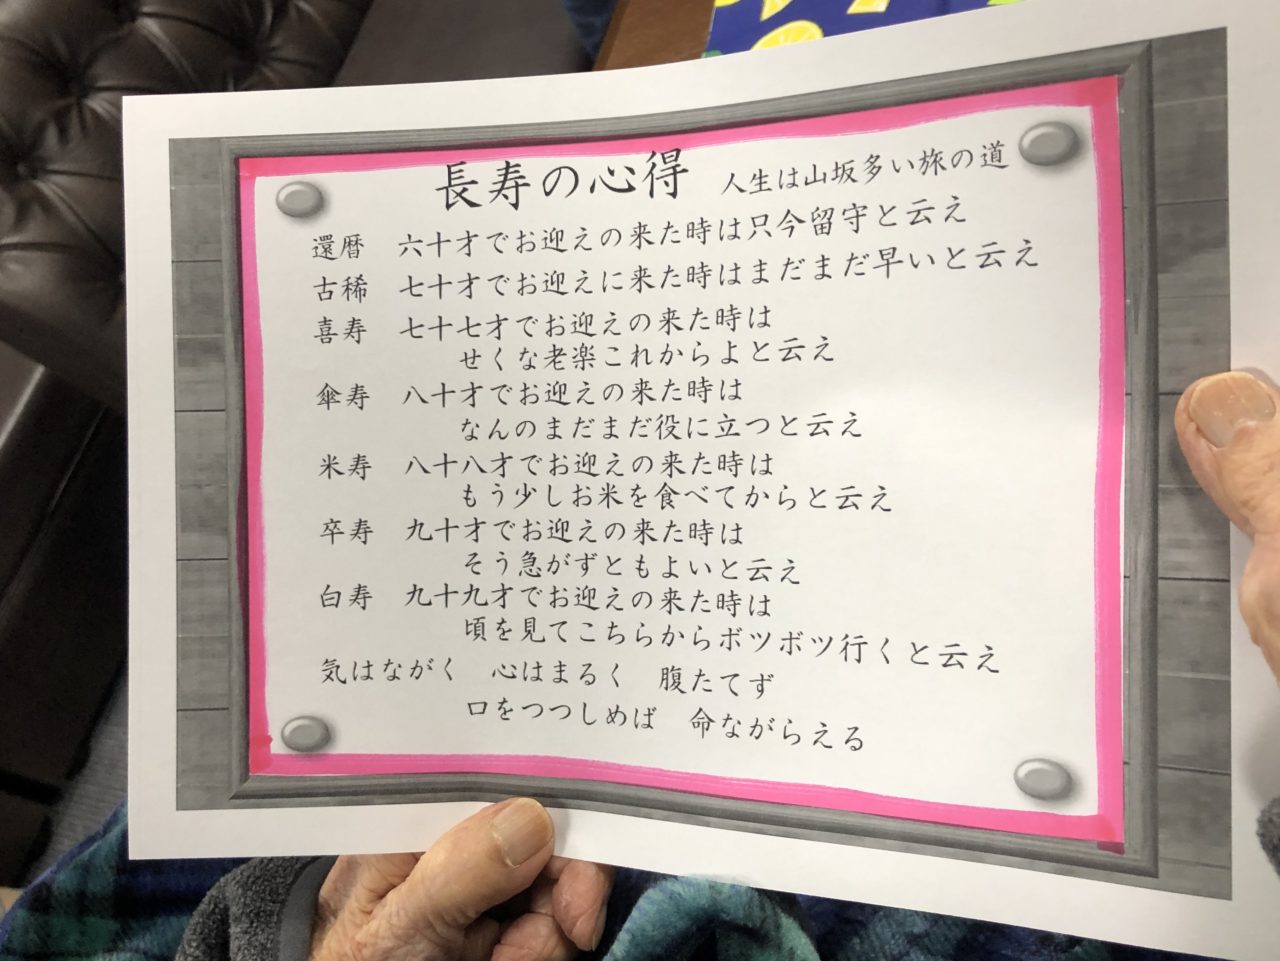 長寿の心得　人生は山坂多い旅の道
還暦　六十才でお迎えの来た時は只今留守と云え
古稀　七十才でお迎えに来た時はまだまだ早いと云え
喜寿　七十七才でお迎えの来た時は
せくな老楽これからよと云え
傘寿　八十才でお迎えの来た時は
なんのまだまだ役に立つと云え
米寿　八十八才でお迎えの来た時は
もう少しお米を食べてからと云え
卒寿　九十才でお迎えの来た時は
そう急がずともよいと云え
白寿　九十九才でお迎えの来た時は
頃を見てこちらからボツボツ行くと云え
気はながく　心はまるく　腹たてず
口をつつしめば　命ながらえる